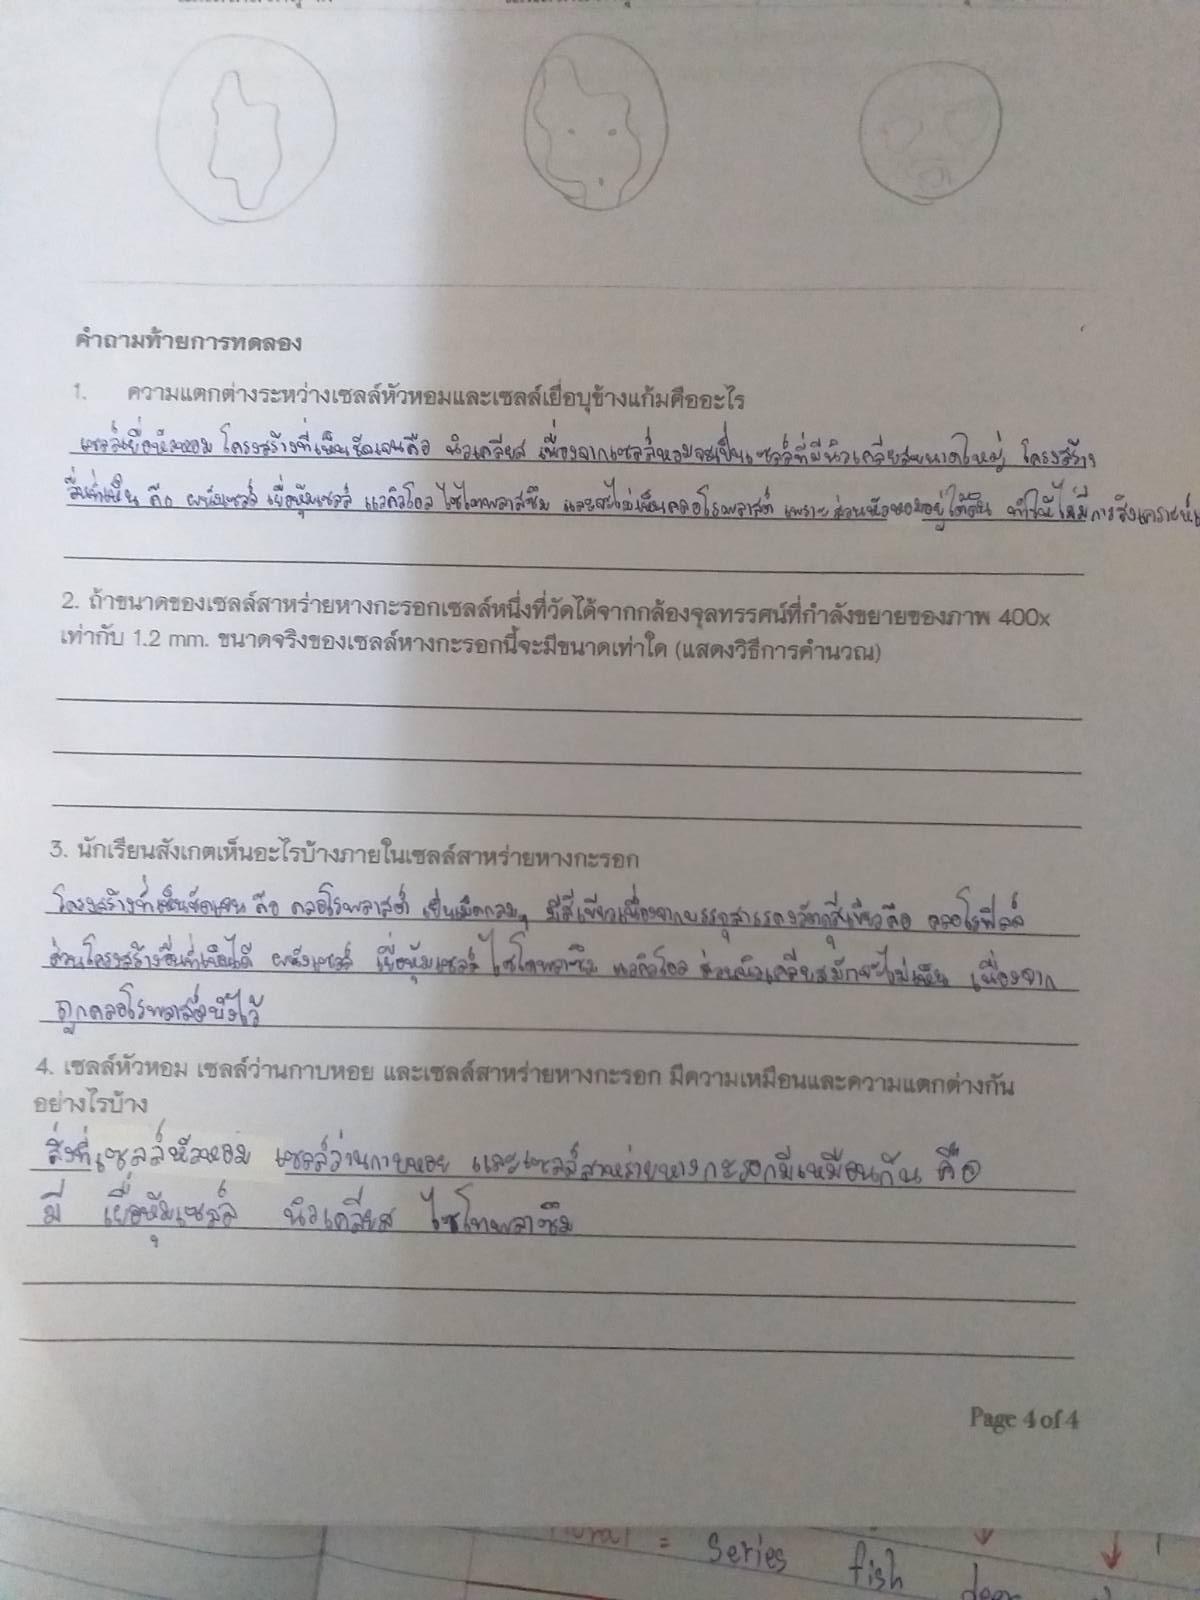 คำถามท้ายการทดลอง
1. ความแตกต่างระหว่างเซลล์หัวหอมและเซลล์เยื่อบุข้างแก้มคืออะไร
เซลล์เยื่อหัวหอม โครงสร้างที่เห็นชัดเจนคือ นิวเคลียส เนื่องจากเซลล์หอมจะเป็นเซลล์ที่มีนิวเคลียสขนาดใหญ่ โครงสร้าง
อื่นที่เห็น คือ ผนังเซลล์ เยื่อหุ้มเซลล์ แวคิวโอล ไซโทพลาสซึม และจะไม่เห็นคลอโรพลาสต์ เพราะส่วนหัวหอมอยู่ใต้ดิน ทำให้ไม่มีการสังเคราะห์
2. ถ้าขนาดของเซลล์สาหร่ายหางกะรอกเซลล์หนึ่งที่วัดได้จากกล้องจุลทรรศน์ที่กำลังขยายของภาพ 400x
เท่ากับ 1.2 mm. ขนาดจริงของเซลล์หางกะรอกนี้จะมีขนาดเท่าใด (แสดงวิธีการคำนวณ)
3. นักเรียนสังเกตเห็นอะไรบ้างภายในเซลล์สาหร่ายหางกะรอก
โครงสร้างที่เห็นชัดเจน คือ คลอโรพลาสต์ เป็นเม็ดกลมๆ มีสีเขียวเนื่องจากบรรจุสารรงควัตถุสีเขียวคือ คลอโรฟิลล์
ส่วนโครงสร้างอื่นที่เห็นได้ ผนังเซลล์ เยื่อหุ้มเซลล์ ไซโตพลาซึม แวคิวโอล ส่วนนิวเคลียสมักจะไม่เห็น เนื่องจาก
ถูกคลอโรพลาสต์บังไว้
4. เซลล์หัวหอม เซลล์ว่านกาบหอย และเซลล์สาหร่ายหางกะรอก มีความเหมือนและความแตกต่างกัน
อย่างไรบ้าง
สิ่งที่เซลล์หัวหอม เซลล์ว่านกาบหอย และเซลล์สาหร่ายหางกะรอกมีเหมือนกัน คือ
มี เยื่อหุ้มเซลล์ นิวเคลียส ไซโทพลาซึม
Page 4 of 4
= series fish